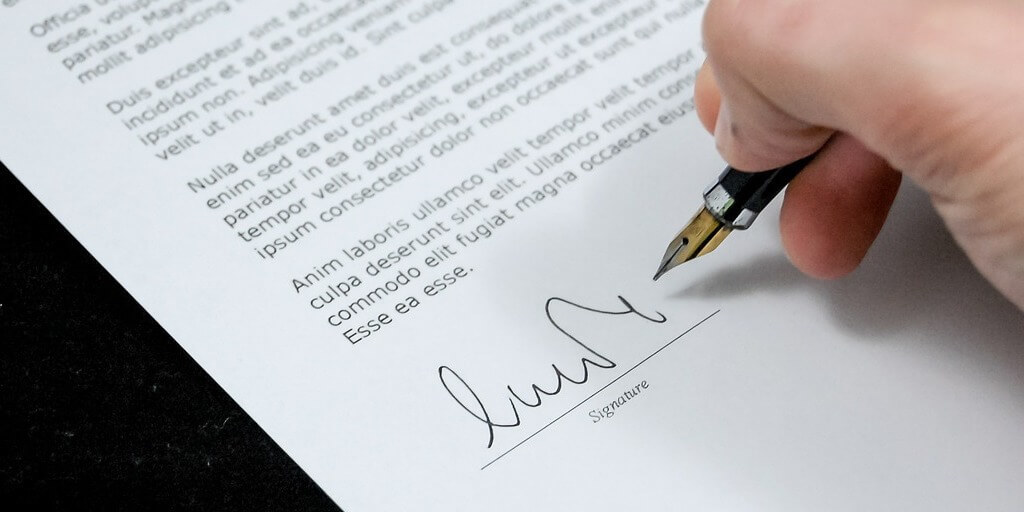 Officia
esse, volup
pariatur. Magn
mollit adipisicing
Duis excepteur sint ad,
incididunt et ad ea occaecat
ipsum non. Adipisicing veniam
velit ut in, velit duis id. Sint culpa
Nulla deserunt amet duis est consequat
enim sed ea eu consectetur ut, do dolore
pariatur in ea dolor velit, excepteur mollit enim
tempor velit, adipisicing, excepteur ut excepteur
ipsum consectetur dolor non occaecat sunt qui nulla
Anim laboris ullamco velit tempor velit tempor
culpa deserunt sint elit. Ullamco minim con
commodo elit fugiat magna occaecat eius
Esse ea esse.
Signature